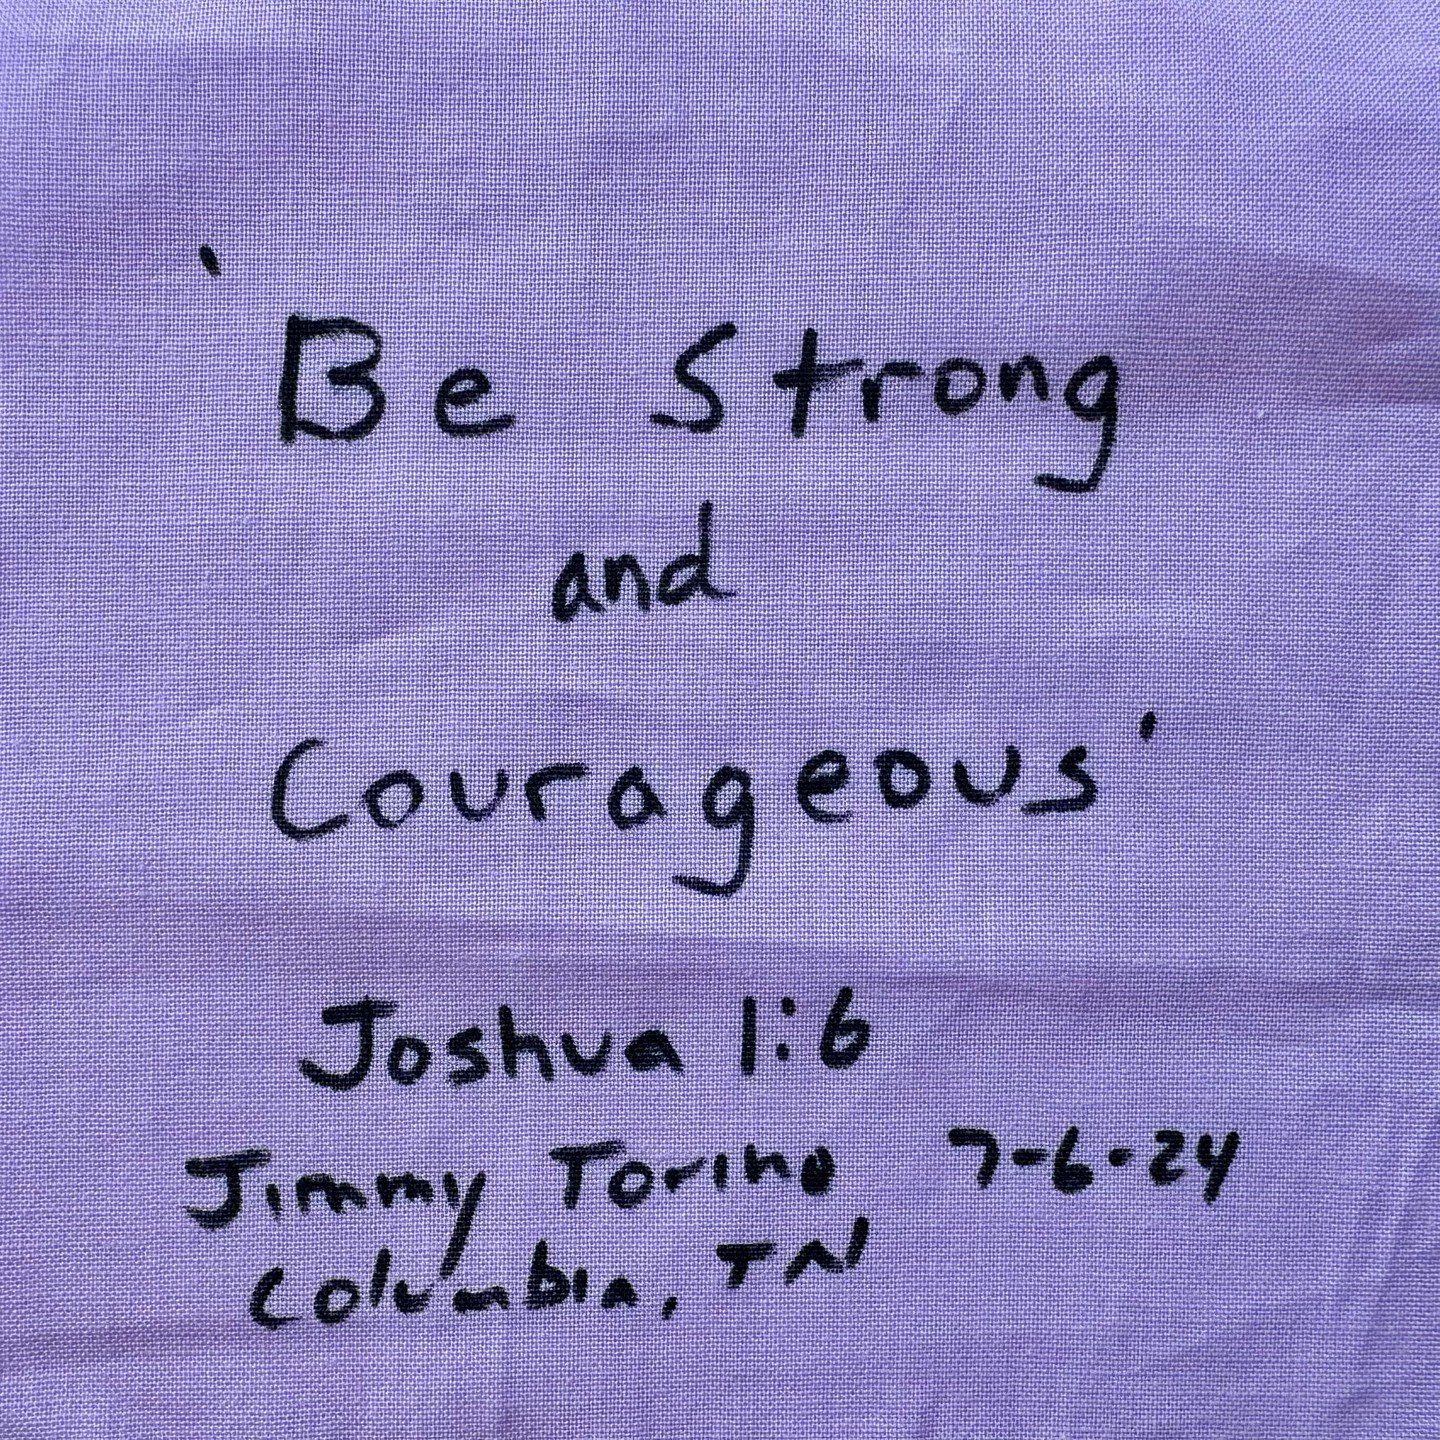 'Be Strong
and
Courageous'
Joshua 1:6
Jimmy Torino 7-6-24
Columbia, TN